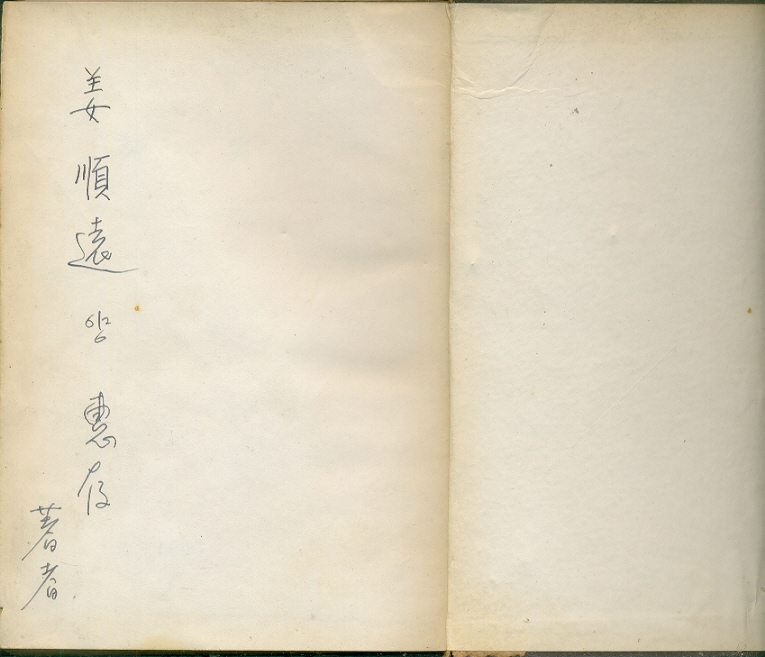 姜順遠 惠存
著者